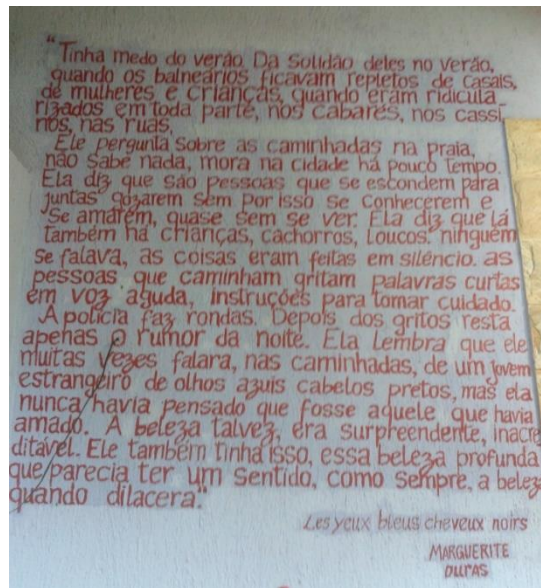 "Tinha medo do verão. Da solidão deles no verão,
quando os balneários ficavam repletos de casais,
de mulheres e crianças, quando eram ridicula-
rizados em toda parte, nos cabarés, nos cassi
nos, nas ruas.
Ele pergunta sobre as caminhadas na praia,
não sabe nada, mora na cidade há pouco tempo.
Ela diz que são pessoas que se escondem para
juntas gozarem sem por isso se conhecerem e
se amarem, quase sem se ver. Ela diz que lá
também há crianças, cachorros, loucos. ninguém
se falava, as coisas eram feitas em silêncio. as
pessoas que caminham gritam palavras curtas
em voz aguda, instruções para tomar cuidado.
A polícia faz rondas. Depois dos gritos resta
apenas o rumor da noite. Ela lembra que ele
muitas vezes falara, nas caminhadas, de um jovem
estrangeiro de olhos azuis cabelos pretos, mas ela
nunca havia pensado que fosse aquele que havia
amado. A beleza talvez, era surpreendente, inacre
ditável. Ele também tinha isso, essa beleza profunda
que parecia ter um sentido, como sempre, a belez
quando dilacera."
Les yeux bleus cheveux noirs
MARGUERITE
DURAS